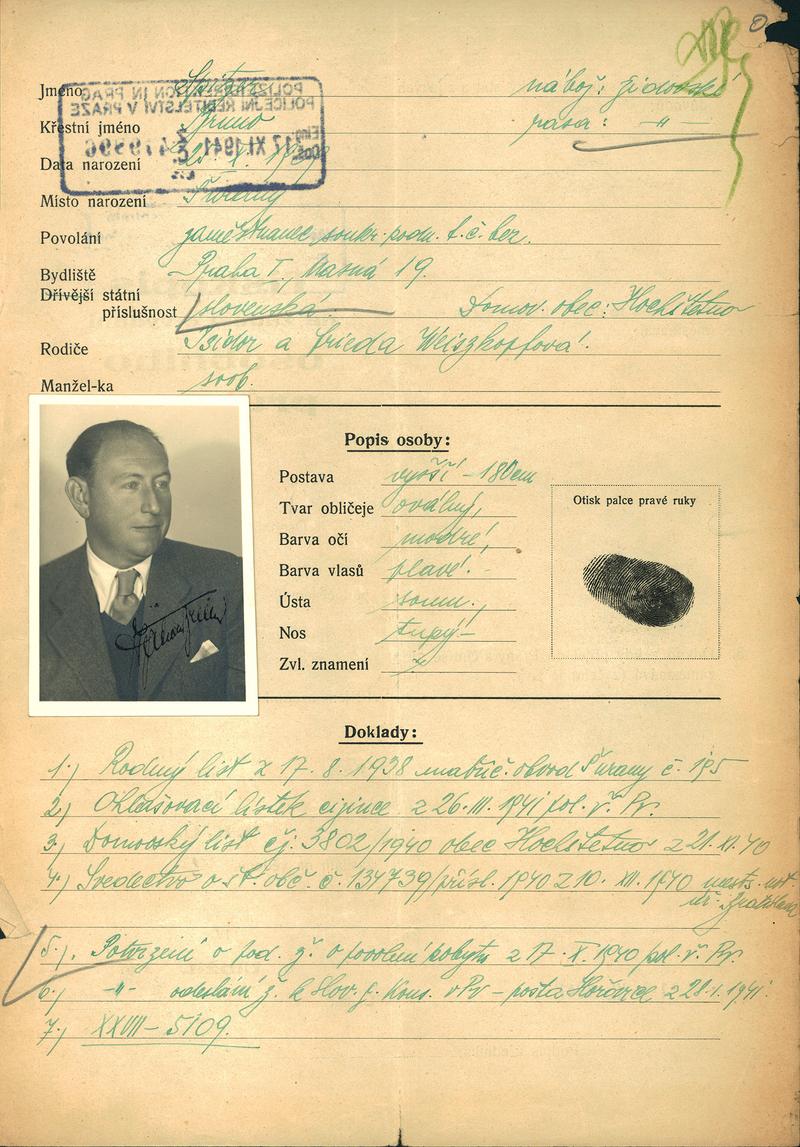 Jméno
nábož: židovské
Křestní jméno Bruno
rasa: -"-
POLIZEIDIREKTION IN PRAG
POLICEJNÍ ŘEDITELSTVÍ V PRAZE
17 XI. 1941
Data narození
Místo narození Šurany
Povolání zaměstnanec soukr. podn. t. č. bez.
Bydliště Praha I., Masná 19.
Dřívější státní
příslušnost slovenská Domov. obec: Hochštetno
Rodiče Isidor a Frieda Weiszkopfová.
Manžel-ka svob.
Popis osoby:
Postava vyšší - 180 cm
Tvar obličeje oválný,
Barva očí modré,
Barva vlasů plavé.-
Ústa soum.,
Nos tupý-
Zvl. znamení
Otisk palce pravé ruky
Doklady:
1.) Rodný list z 17. 8. 1938 matrič. obvod Šurany č. 195
2.) Ohlašovací lístek cizince z 26. III. 1941 pol. ř. Pr.
3.) Domovský list čj: 3802/1940 obec Hochštetno z 21. XI. 40
4.) Svedectvo o št. obč. č. 134739/přísl. 1940 z 10. XII. 1940
Bratislava
5.). Potvrzení o pod. ž. o povolení pobytu z 17. X. 1940 pol. ř. Pr.
6.) -"- odeslání ž. k Slov. g. Kons. v Pr - pošta Hořovice z 28. 1. 1941.
7.) XXVII - 5109.